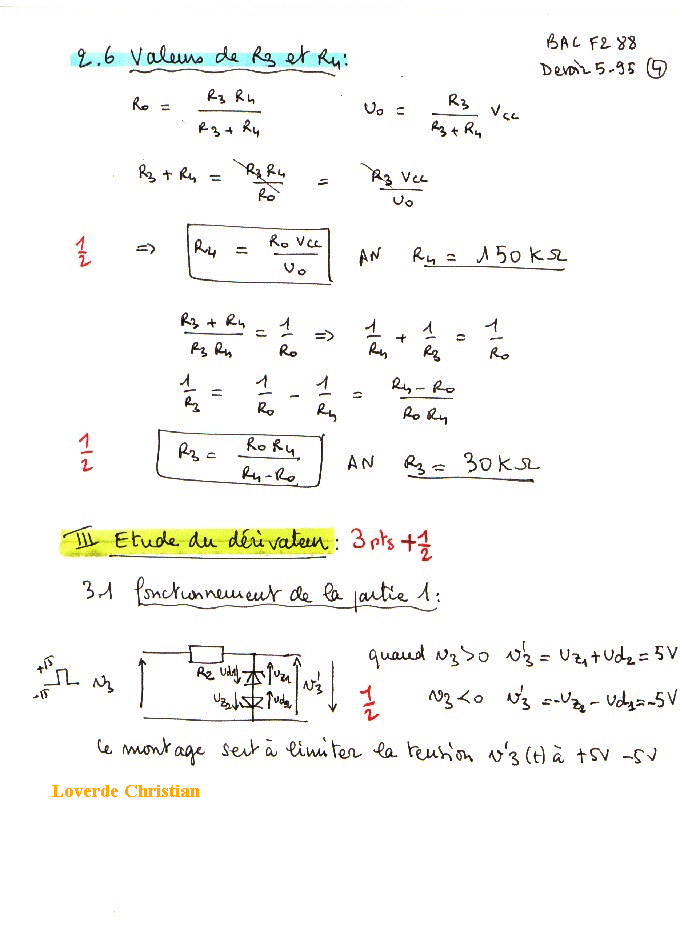 BAC F2 88
2.6 Valeurs de R3 et R4:
Devoir 5-95 (4)
R0 = R3 R4 / (R3 + R4)    U0 = R3 / (R3 + R4) Vcc
R3 + R4 = R3 R4 / R0 = R3 Vcc / U0
1/2 => R4 = R0 Vcc / U0 AN R4 = 150 KΩ
(R3 + R4) / (R3 R4) = 1/R0 => 1/R4 + 1/R3 = 1/R0
1/R3 = 1/R0 - 1/R4 = (R4 - R0) / (R0 R4)
1/2 R3 = R0 R4 / (R4 - R0) AN R3 = 30 KΩ
III Etude du dérivateur : 3 pts + 1/2
3.1 fonctionnement de la partie 1 :
+15
-15
v3
R2
Ud1
Uz1
Uz2
Ud2
v'3
quand v3 > 0 v'3 = Uz1 + Ud2 = 5V
1/2 v3 < 0 v'3 = -Uz2 - Ud1 = -5V
Ce montage sert à limiter la tension v'3 (t) à +5V -5V
Loverde Christian